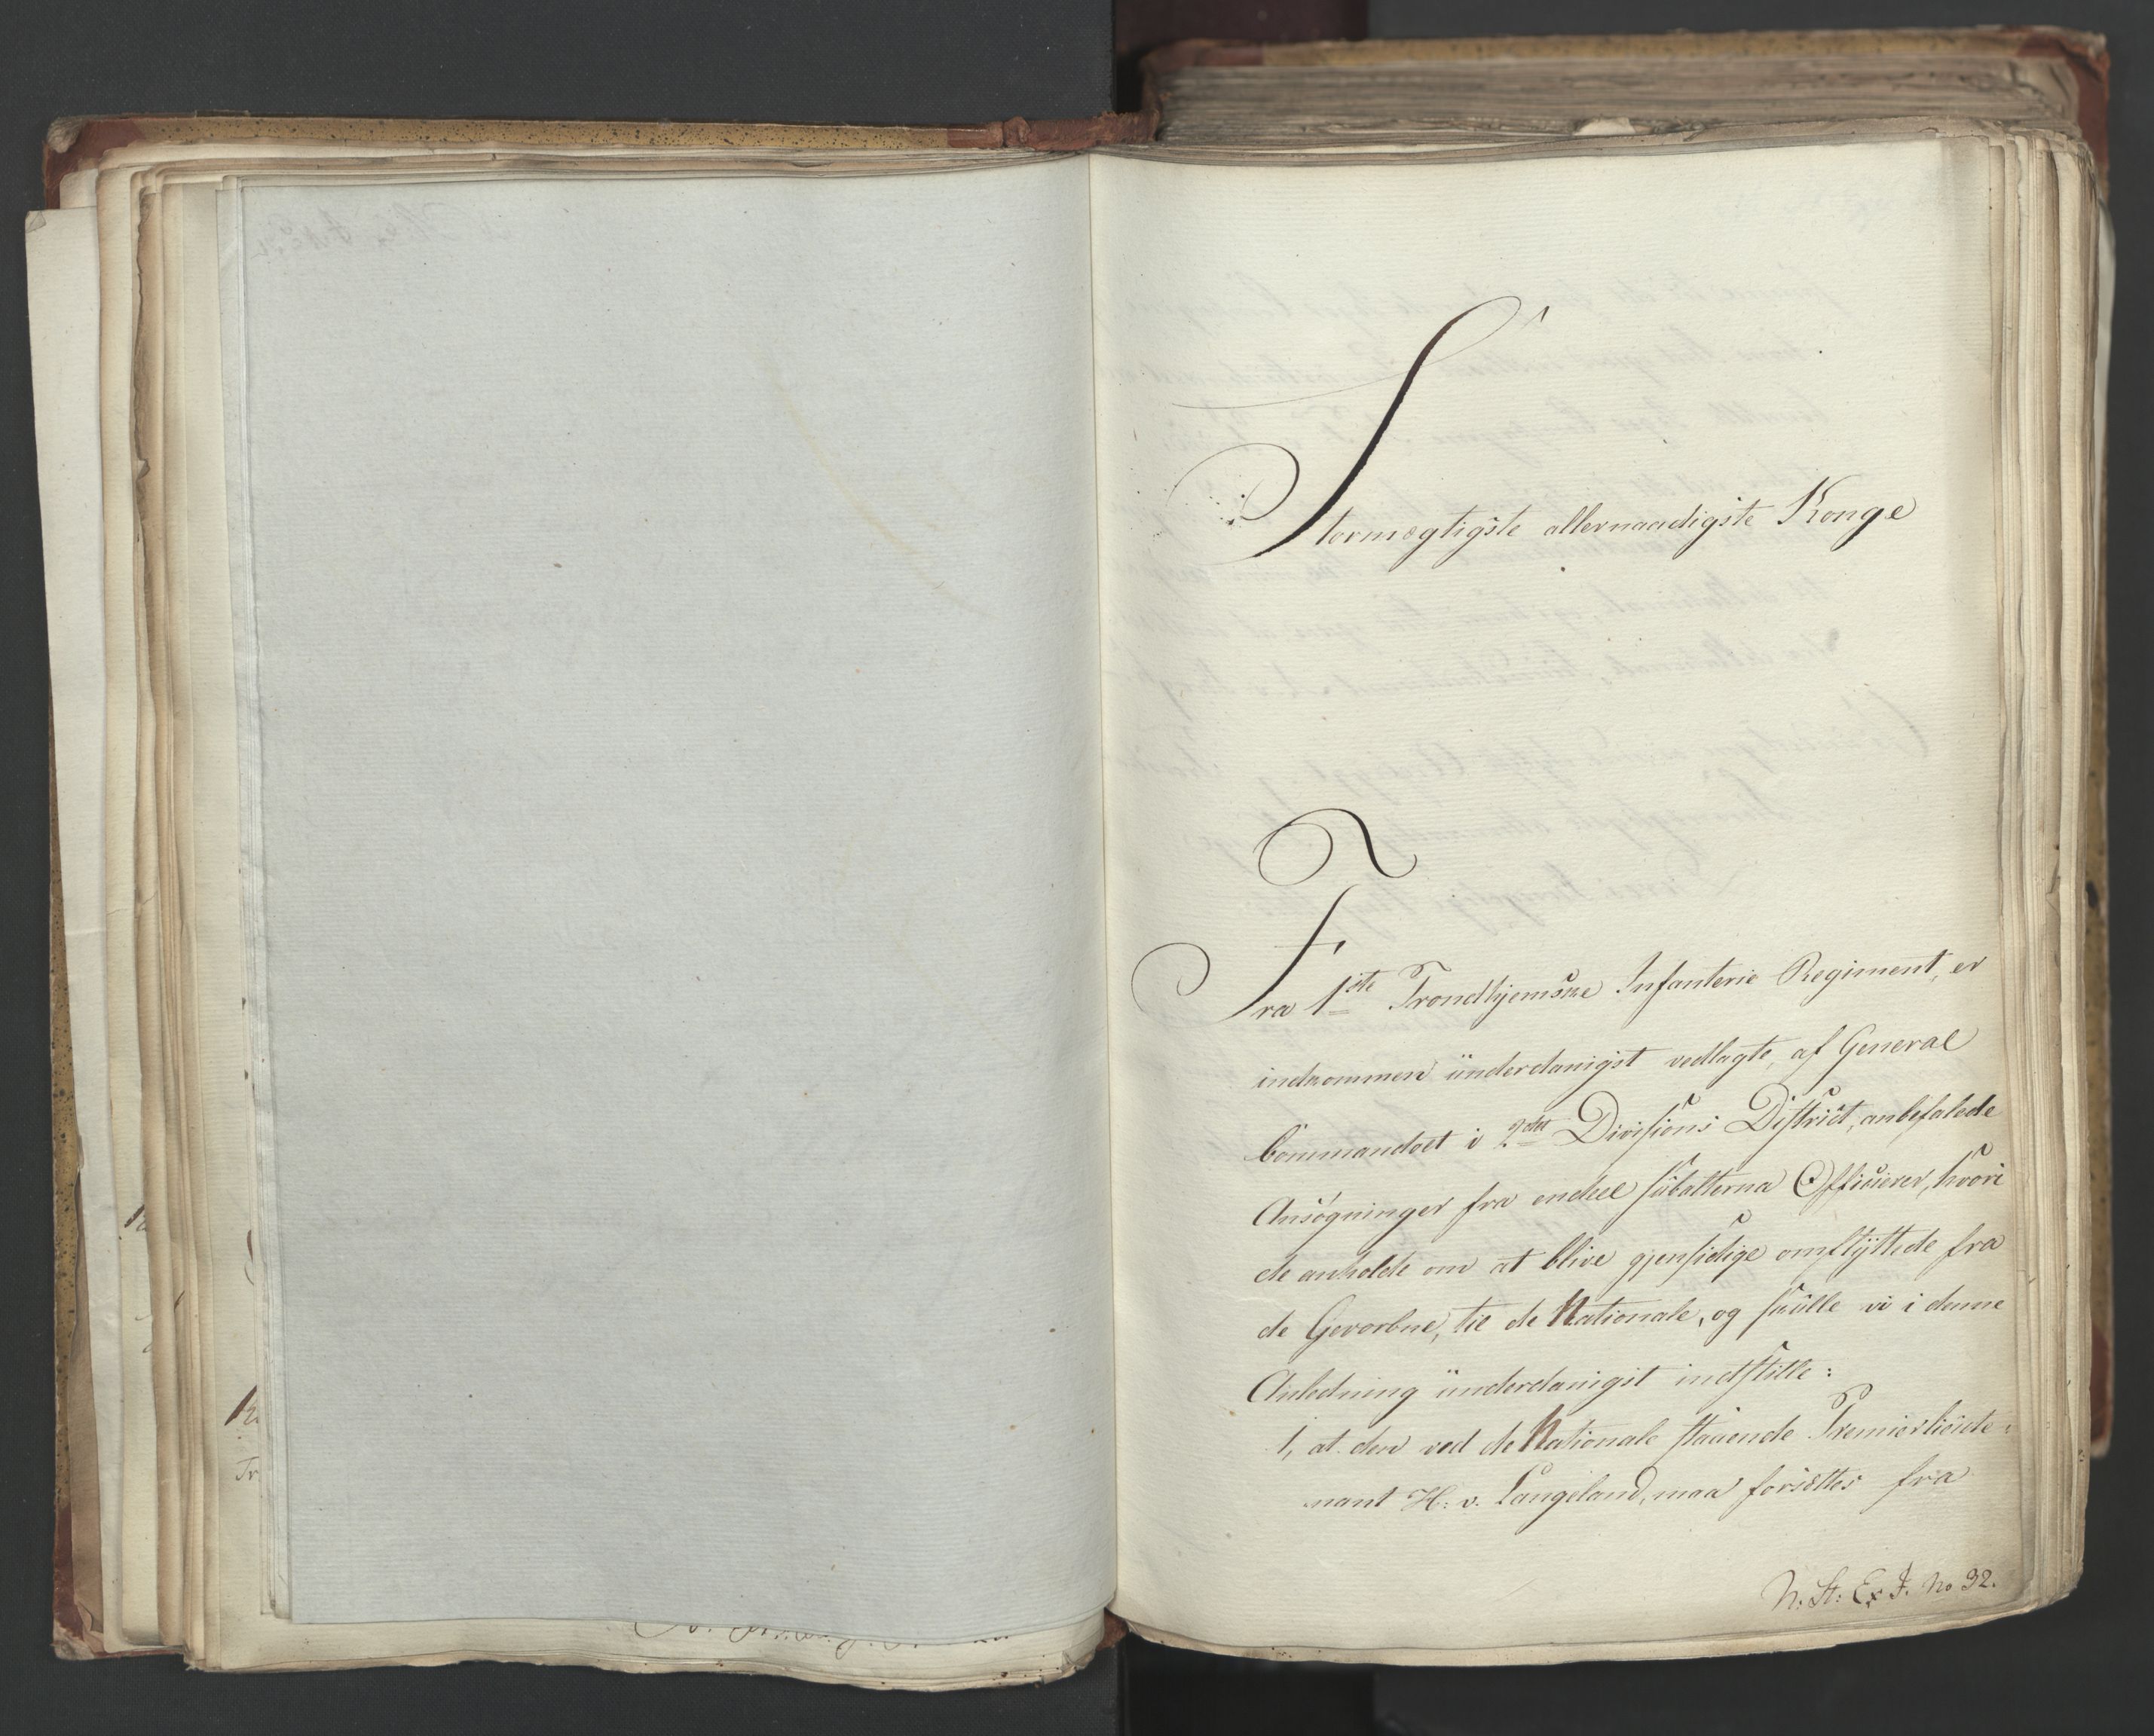 Stormægtigste allernaadigste Konge
Fra 1ste Trondhjemske Infanterie Regiment, er
indkommen ünderdanigst vedlagte, af General
Commandoet i 2det Divisions District, anbefalede
Ansøgninger fra endeel sübalterna Officierer, hvori
de anholde om at blive gjensidige omflyttede fra
de Gevorbne, til de Nationale, og skülle vi i denne
Anledning ünderdanigst indstille:
1, at den ved de Nationale staaende Premierlieüte-
nant H: v. Langeland, maa forsættes fra
N: St: Ex J. No 32.